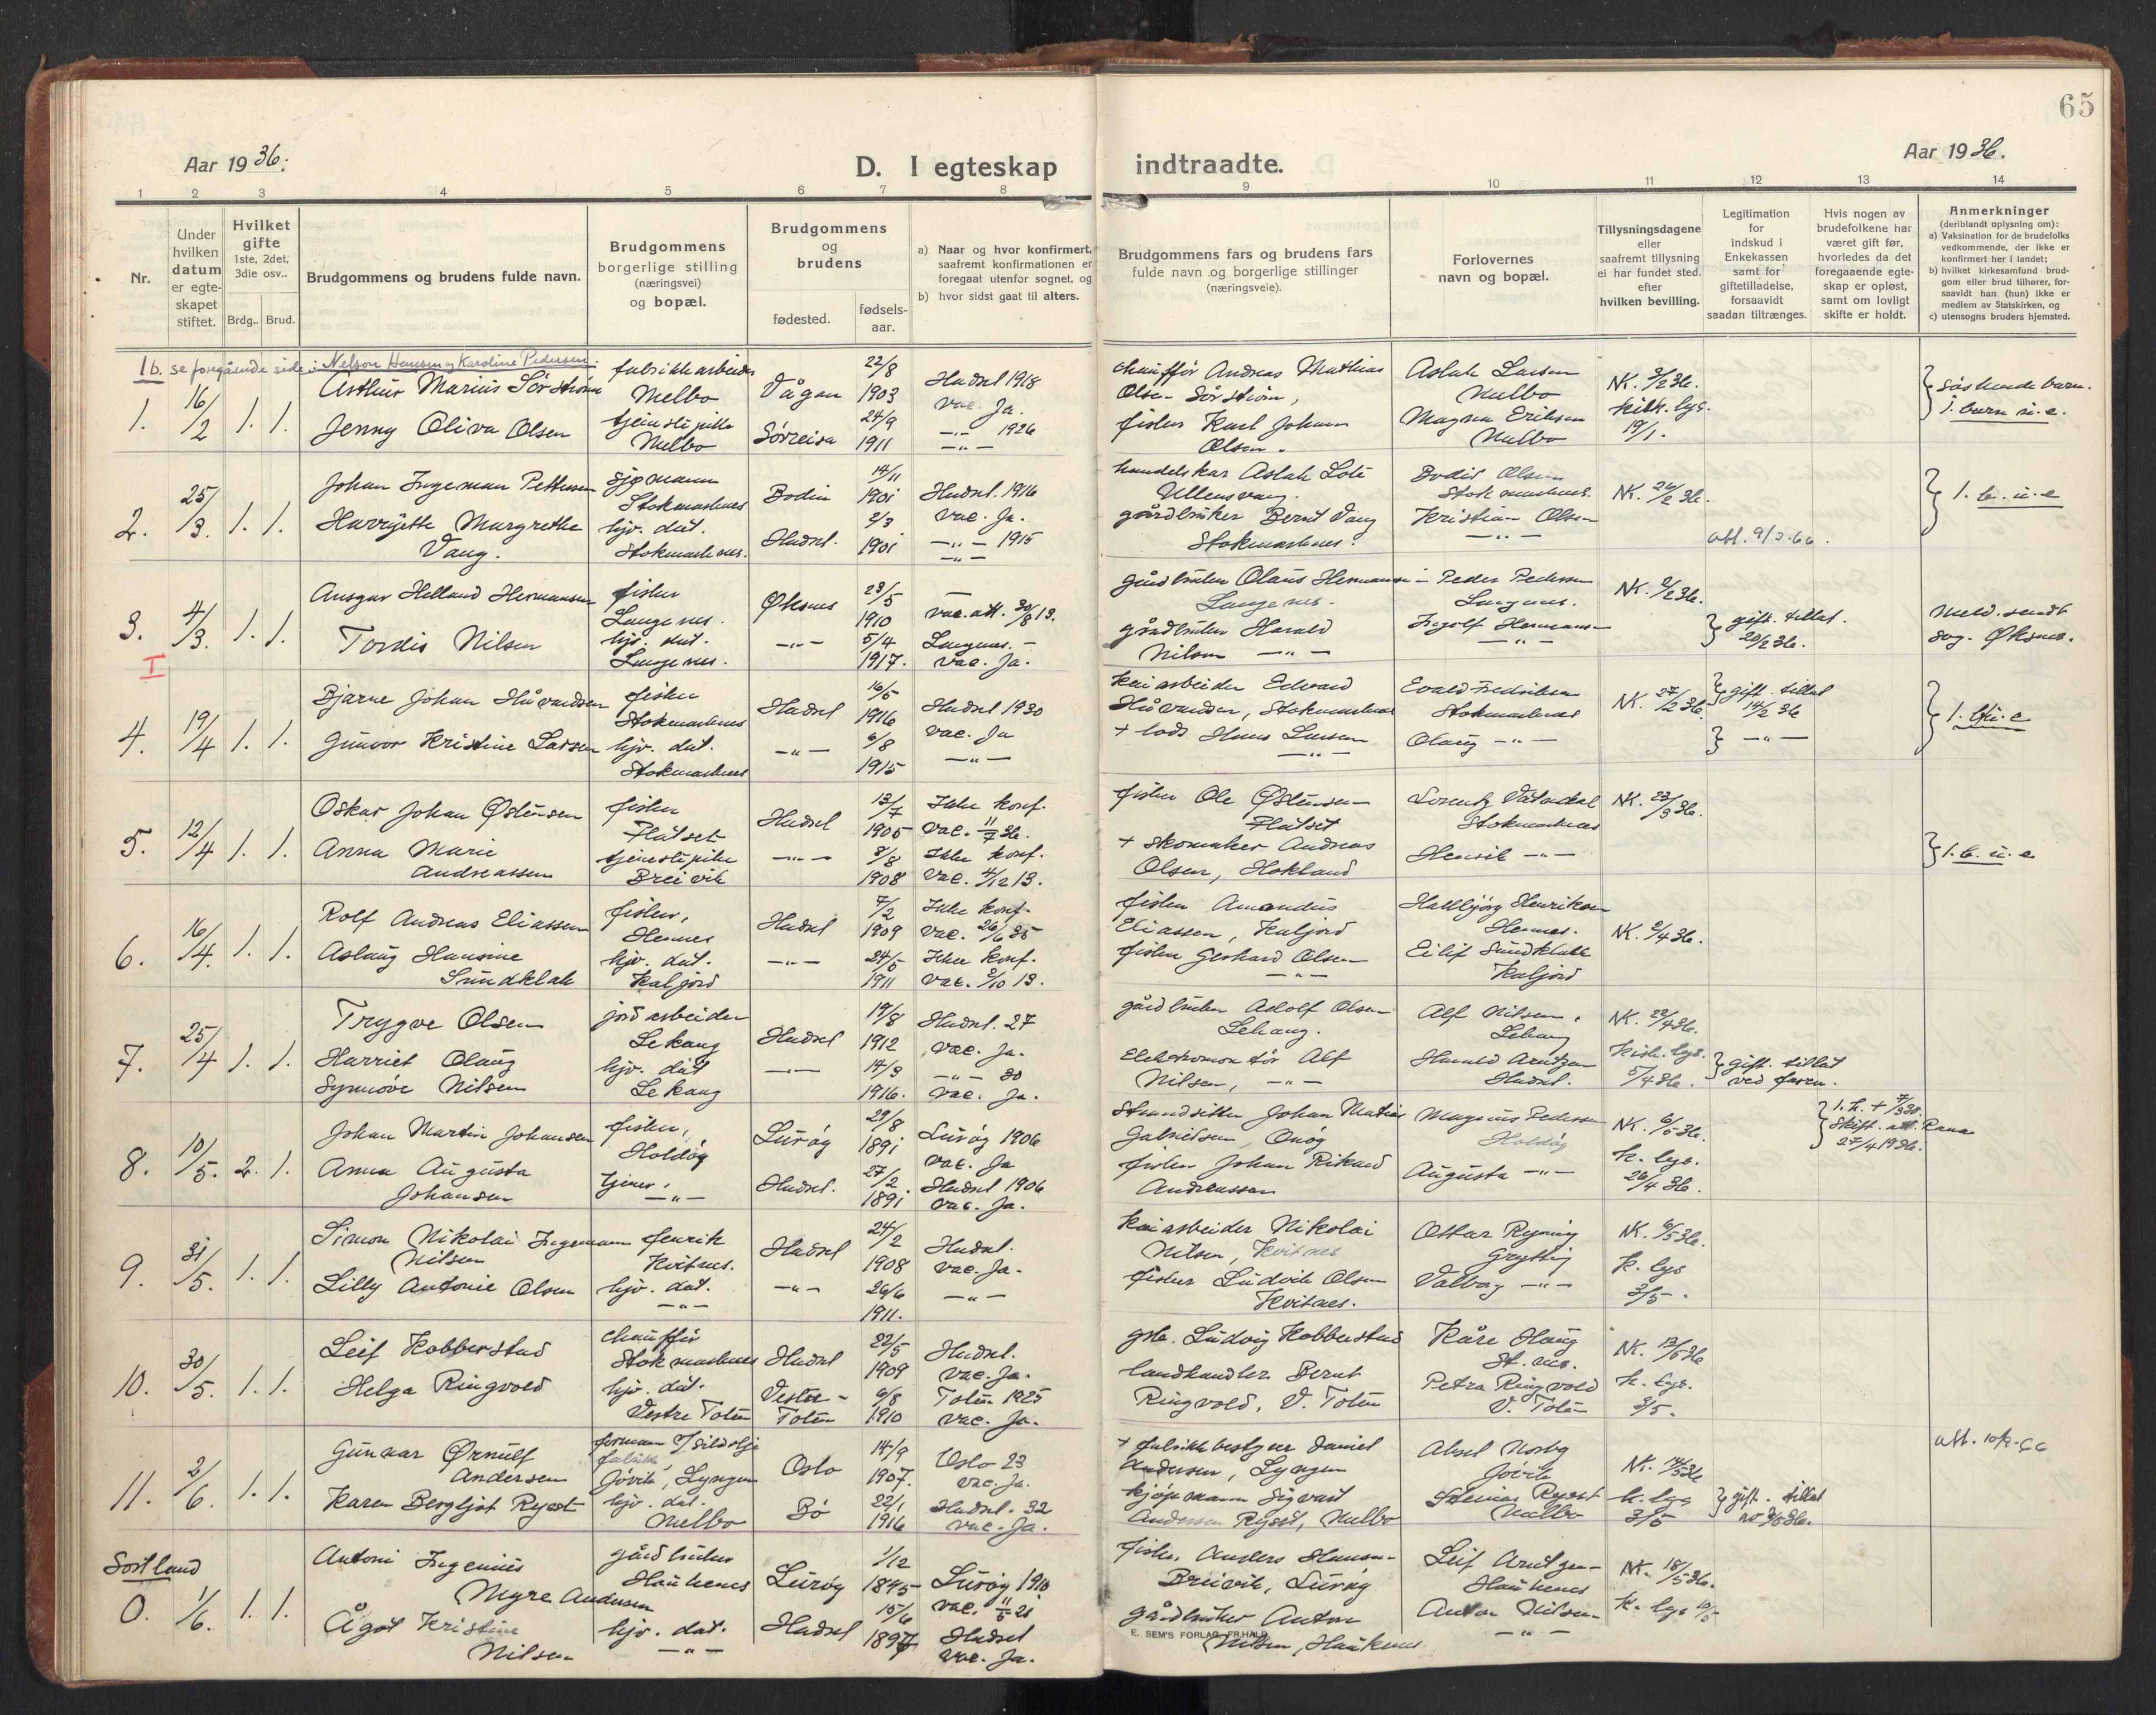 65
Aar 1936.
D. I egteskap indtraadte.
Aar 1936.
1 2 3 4 5 6 7 8 9 10 11 12 13 14
Nr.
Under hvilken datum er egteskapet stiftet.
Hvilket gifte 1ste, 2det, 3die osv..
Brdg.. Brud.
Brudgommens og brudens fulde navn.
Brudgommens borgerlige stilling (næringsvei) og bopæl.
Brudgommens og brudens
fødested.
fødselsaar.
a) Naar og hvor konfirmert, saafremt konfirmationen er foregaat utenfor sognet, og
b) hvor sidst gaat til alters.
Brudgommens fars og brudens fars fulde navn og borgerlige stillinger (næringsveie).
Forlovernes navn og bopæl.
Tillysningsdagene eller saafremt tillysning ei har fundet sted. efter hvilken bevilling.
Legitimation for indskud i Enkekassen samt for giftetilladelse, forsaavidt saadan tiltrænges.
Hvis nogen av brudefolkene har været gift før, hvorledes da det foregaaende egteskap er opløst, samt om lovligt skifte er holdt.
Anmerkninger (deriblandt oplysning om):
a) Vaksination for de brudefolks vedkommende, der ikke er konfirmert her i landet;
b) hvilket kirkesamfund brudgom eller brud tilhører, forsaavidt han (hun) ikke er medlem av Statskirken, og
c) utensogns bruders hjemsted.
1b. se foregående side: Nelson Hansen og Karoline Pedersen.
1. 16/2 1. 1.
Arthur Marius Sørstrøm fabrikkarbeider Melbo Vågan 22/8 1903 Hadsel 1918 vac. Ja.
Jenny Oliva Olsen tjenestepike Melbo Sørreisa 24/9 1911 -"- 1926 -"-
chauffør Andreas Mathias Olsen Sørstrøm, Aslak Larsen Melbo NK. 3/2 36.
fisker Karl Johan Olsen. Magna Eriksen Melbo kirk. lys. 19/1.
søskendebarn.
1. barn u. e.
2. 25/3. 1. 1.
Johan Ingeman Pettersen sjømann Stokmarknes Bodin 14/11 1901 Hadsel. 1916 vac. Ja.
Harriette Margrethe Vang. hjv. dat. Stokmarknes. Hadsel. 2/3 1901 -"- 1915 -"-
handelskar Aslak Lote Ullensvang. Bodil Olsen Stokmarknes. NK. 26/2 36.
gårdbruker Bernt Vang Stokmarknes. Kristian Olsen -"-
1. b. u. e
3. 4/3. 1. 1.
I
Ansgar Helland Hermansen fisker Langenes. Øksnes 23/5 1910 — vac. att. 30/8 13.
Tordis Nilsen hjv. dat. Langenes. -"- 5/4 1917. Langenes. - vac. Ja.
gårdbruker Olaus Hermansen Langenes. Peder Pedersen Langenes. NK. 2/2 36.
gårdbruker Harald Nilsen -"- Ingolf Hermansen -"-
gift. tillat. 20/2 36.
Meld. sendt sog. Øksnes.
4. 19/4 1. 1.
Bjarne Johan Håvardsen fisker Stokmarknes Hadsel 16/5 1916 Hadsel 1930 vac. Ja
Gunvor Kristine Larsen hjv. dat. Stokmarknes -"- 6/8 1915 -"-
kaiarbeider Edvard Håvardsen, Stokmarknes Evald Fredriksen Stokmarknes NK. 27/2 36. gift. tillat 14/2 36
+ lods Hans Larsen -"- Olaug -"- -"-
1. b. u. e
5. 12/4 1. 1.
Oskar Johan Østensen fisker Flatset Hadsel 13/7 1905 Ikke konf. vac. 11/7 36.
Anna Marie Andreassen tjenestepike Breivik -"- 8/8 1908 Ikke konf. vac. 4/12 13.
fisker Ole Østensen Flatset Stokmarknes NK. 23/3 36.
+ skomaker Andreas Olsen, Hokland Henrik -"-
1. b. u. e
6. 16/4. 1. 1.
Rolf Andreas Eliassen fisker, Hennes Hadsel 7/2 1909 Ikke konf. vac. 26/6 35
Aslaug Hansine Sundklak hjv. dat. Kaljord -"- 24/5 1911 Ikke konf. vac. 2/10 13.
fisker Amandus Eliassen, Kaljord Hallbjørg Henriksen Hennes. NK. 2/4 36.
fisker Gerhard Olsen -"- Eilif Sundklakk Kaljord
7. 25/4 1. 1.
Trygve Olsen jordarbeider Lekang Hadsel 19/8 1912 Hadsel. 27 vac. Ja.
Harriet Olaug Synnøve Nilsen hjv. dat Lekang -"- 14/3 1916. -"- 30 vac. Ja.
gårdbruker Adolf Olsen Lekang. Alf Nilsen, Lekang NK. 22/4 36.
Elektromontør Alf Nilsen, -"- Harald Arntzen Hadsel. Kirk. lys. 5/4 36.
gift. tillat ved faren.
8. 10/5. 2. 1.
Johan Martin Johansen fisker, Holdøy Lurøy 29/8 1891 Lurøy 1906 vac. Ja
Anna Augusta Johansen tjener. -"- Hadsel. 27/2 1891 Hadsel 1906 vac. Ja.
Strandsitter Johan Matias Gabrielsen, Onøy Magnus Pedersen Holdøy NK. 6/5 36.
fisker Johan Rikard Andreassen Augusta -"- k. lys. 26/4 36.
1. h. + 7/3 30. Skift. att. Rana 27/4 1936.
9. 31/5. 1. 1.
Simon Nikolai Ingemann Nilsen fenrik Kvitnes. Hadsel 24/2 1908 Hadsel. vac. Ja.
Lilly Antonie Olsen hjv. dat. -"- -"- 26/6 1911. -"-
kaiarbeider Nikolai Nilsen, Kvitnes Ottar Ryning Grytting NK. 6/5 36.
fisker Ludvik Olsen Kvitnes. Valborg -"- k. lys 3/5.
10. 30/5. 1. 1.
Leif Kobberstad chauffør Stokmarknes Hadsel 22/5 1909 Hadsel. vac. Ja.
Helga Ringvold hjv. dat. Vestre Toten Vestre-Toten 6/8 1910 Toten 1925 vac. Ja.
gbr. Ludvig Kobberstad Kåre Haug St. nes. NK. 13/5 36
landhandler Bernt Ringvold, V. Toten Petra Ringvold V. Toten k. lys. 3/5.
11. 2/6. 1. 1.
Gunnar Ørnulf Andersen formann v/ sildolje fabrikk, Jøvik, Lyngen Oslo 14/9 1907. Oslo 23 vac. Ja.
Karen Bergljot Rygst hjv. dat. Melbo Bø 22/1 1916 Hadsel. 32 vac. Ja.
+ fabrikkbestyrer Daniel Andersen, Lyngen Jøvik NK. 14/5 36
kjøpmann Sigvart Andersen Rygst, Melbo Rygst Melbo k. lys 3/5
gift. tillat
Sortland
0. 1/6. 1. 1.
Antoni Ingenius Myre Andersen gårdbruker Haukenes Lurøy 1/12 1895 Lurøy 1910 vac. 11/5 21
Ågot Kristine Nilsen hjv. dat. -"- Hadsel 15/6 1897 Hadsel vac. Ja.
fisker Anders Hansen Breivik, Lurøy Leif Arntzen Haukenes NK. 18/5 36.
gårdbruker Anton Nilsen, Haukenes Anton Nilsen -"- k. lys 10/5
E. SEM'S FORLAG, FR.HALD